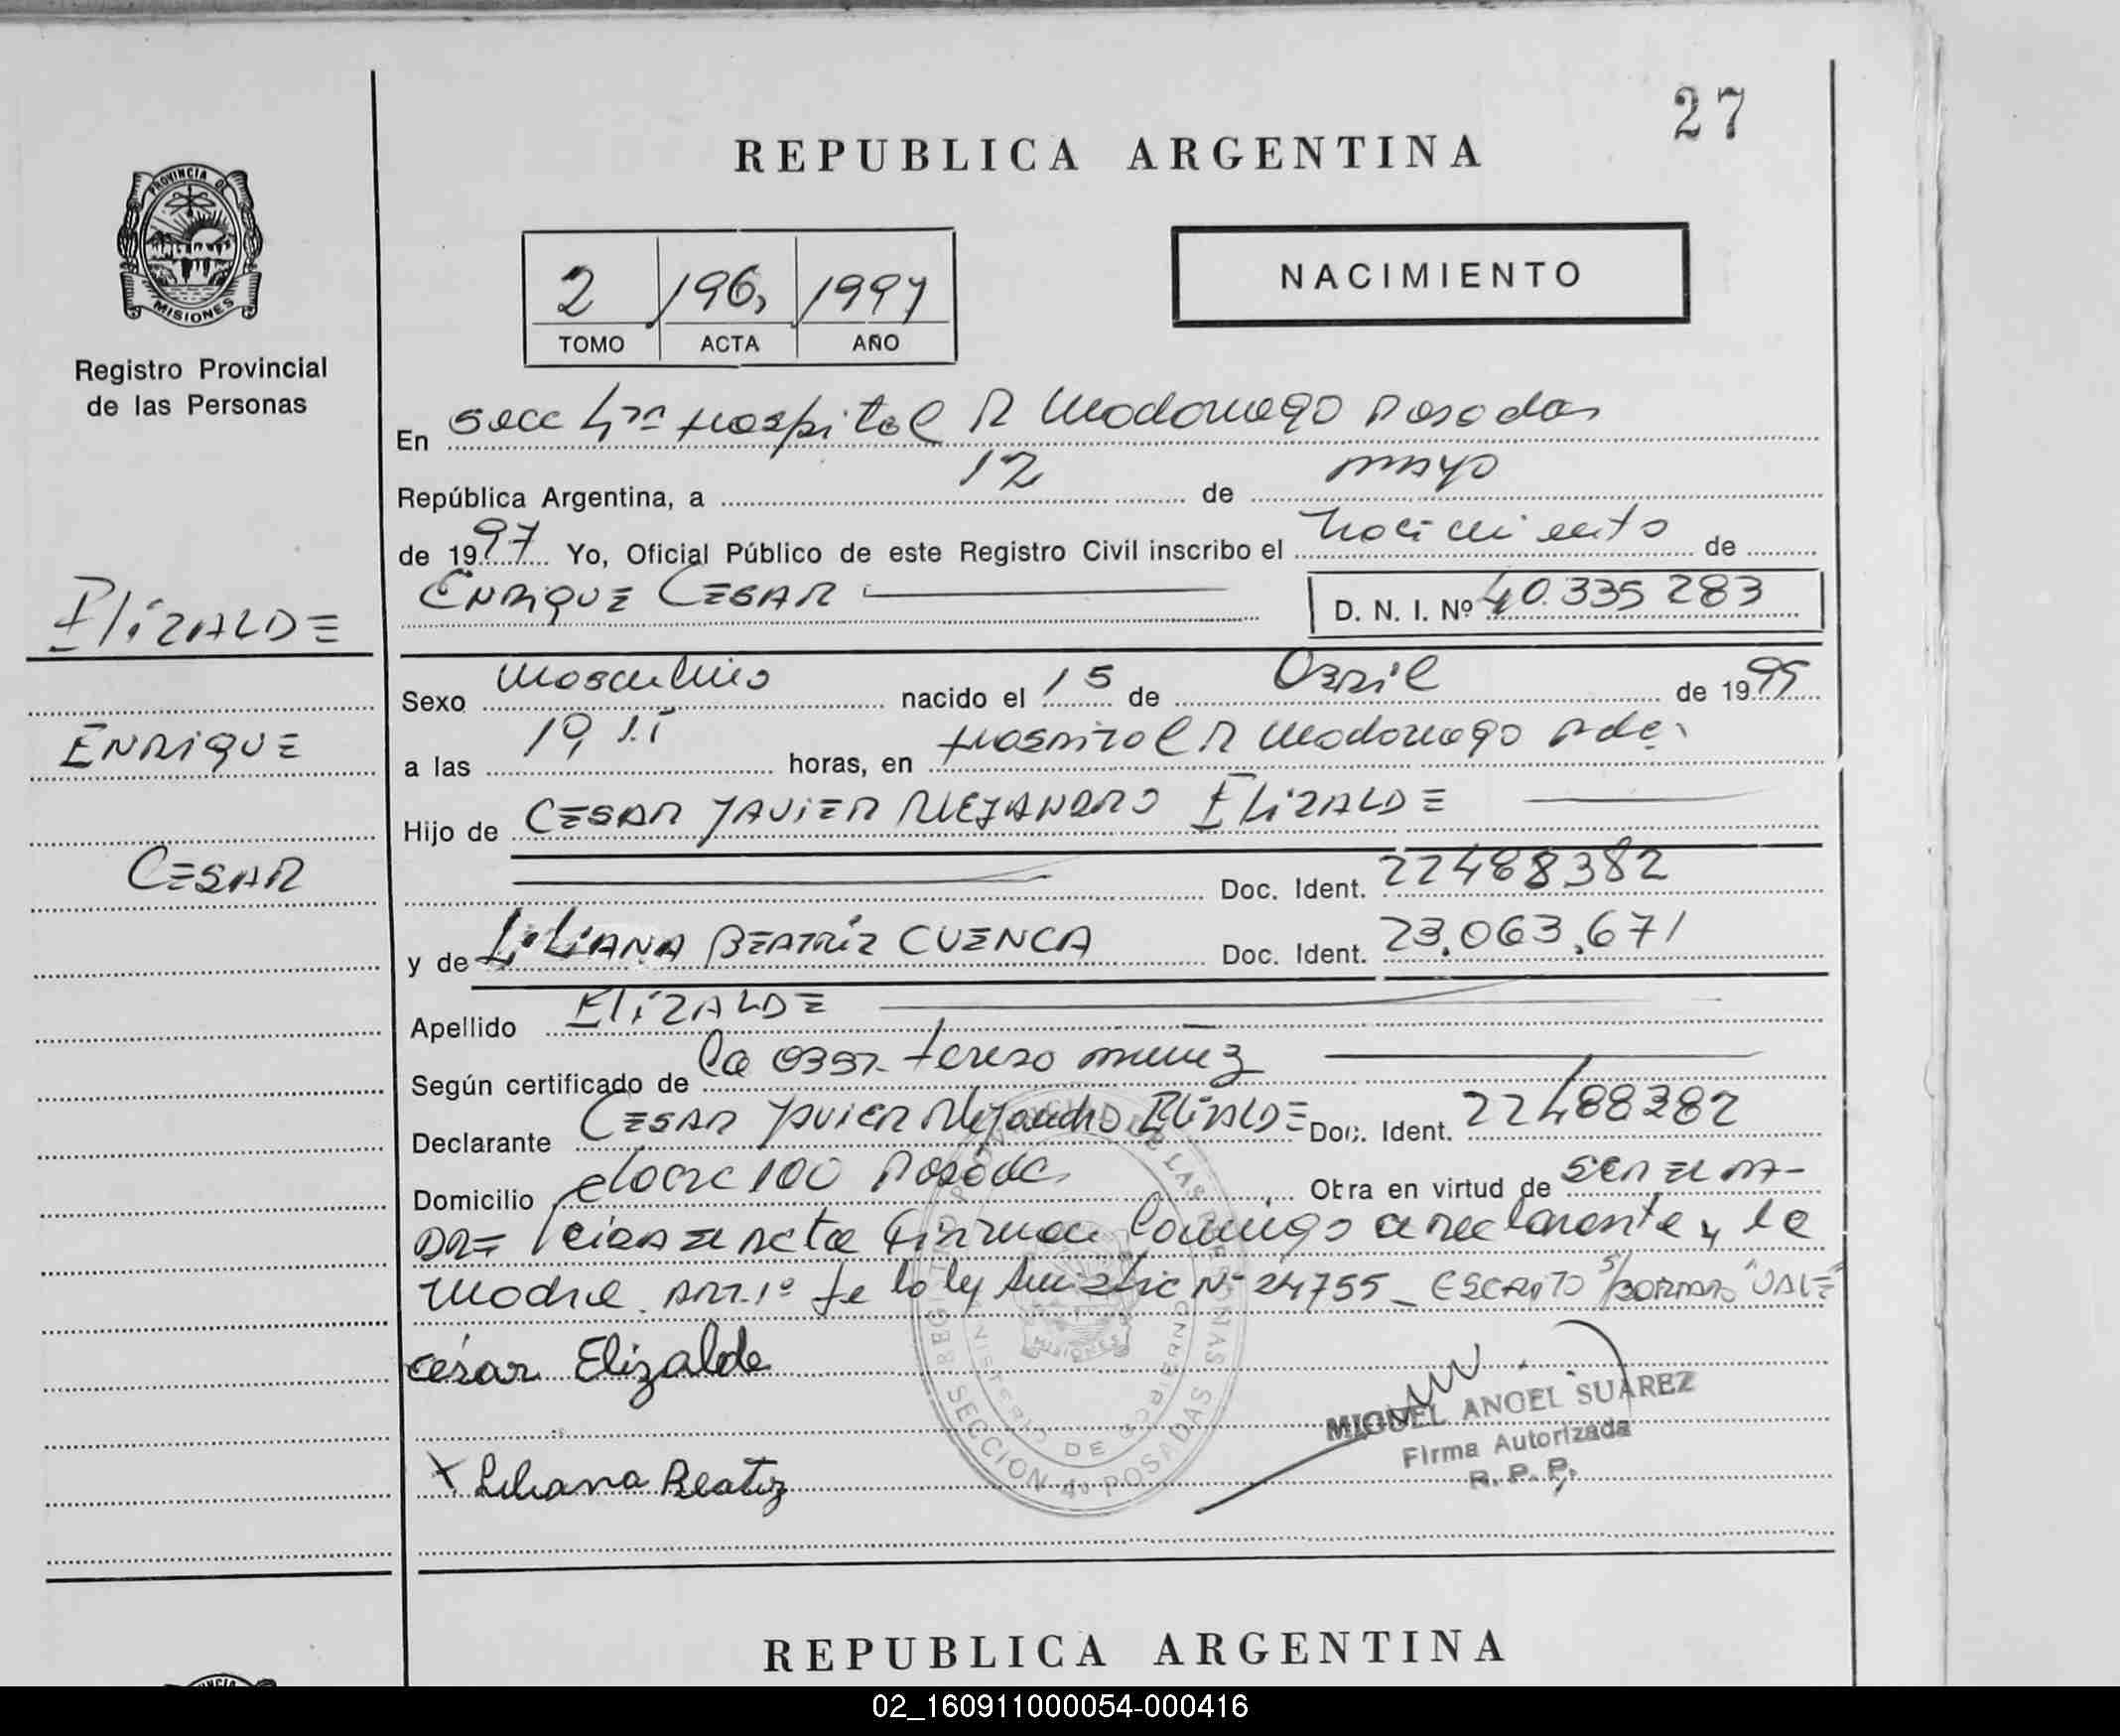 27
REPUBLICA ARGENTINA
PROVINCIA DE
MISIONES
Registro Provincial
de las Personas
2 196, 1997
TOMO ACTA AÑO
NACIMIENTO
En Secc 4ra Hospital R Madariaga Posadas
República Argentina, a 12 de mayo
de 1997 Yo, Oficial Público de este Registro Civil inscribo el nacimiento de
ENRIQUE CESAR D. N. I. Nº 40.335 283
ELIZALDE
ENRIQUE
CESAR
Sexo masculino nacido el 15 de Abril de 19
a las 19, horas, en Hospital R Madariaga Pdas
Hijo de CESAR JAVIER ALEJANDRO ELIZALDE
Doc. Ident. 22488382
y de LILIANA BEATRIZ CUENCA Doc. Ident. 23.063.671
Apellido ELIZALDE
Según certificado de la Obst. Teresa
Declarante CESAR JAVIER Alejandro ELIZALDE Doc. Ident. 22488382
Domicilio 100 Posadas Obra en virtud de SER EL PA-
DRE leida el acta firman conmigo declarante y la
madre. ART. 1º de la ley Nº 24755_ ESCRITO S/BORRADO "VALE"
César Elizalde
X Liliana Beatriz
REGISTRO PROVINCIAL DE LAS PERSONAS
MINISTERIO DE GOBIERNO
MISIONES
SECCION 4ª POSADAS
MIGUEL ANGEL SUAREZ
Firma Autorizada
R. P. P.
REPUBLICA ARGENTINA
02_160911000054-000416